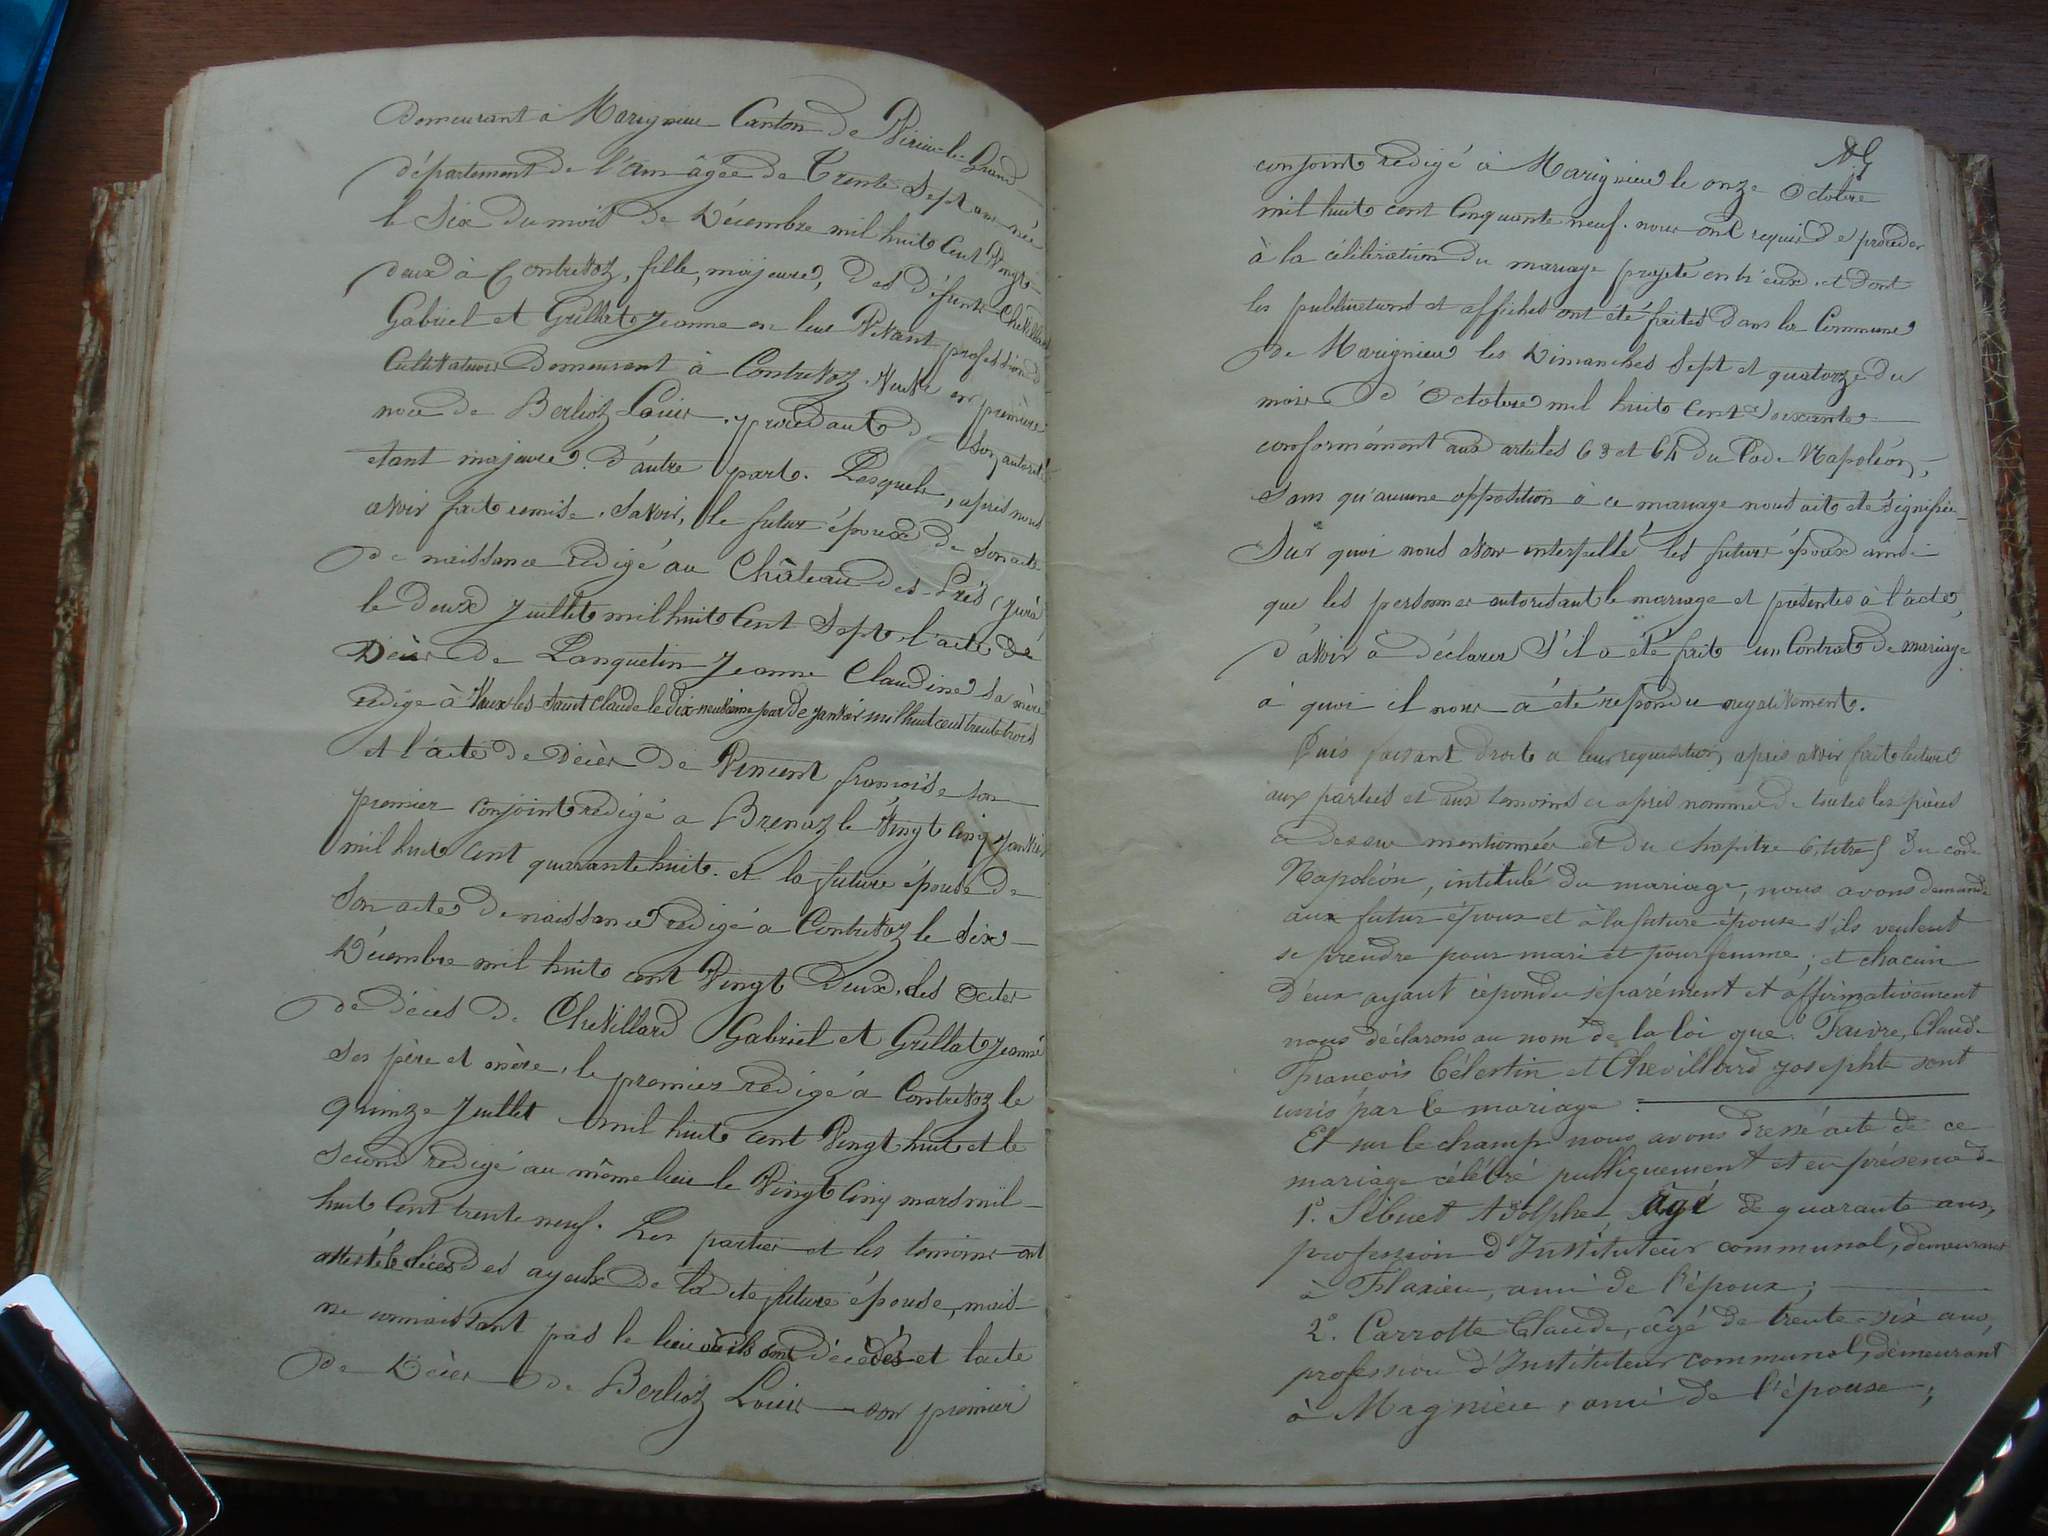 Demeurant à Marignieu Canton de Virieu-le-Grand
département de l'ain âgée de Trente Sept ans née
le Six du mois de Décembre mil huit Cent Vingt-
deux à Contrevoz, fille, majeure, des défunts Chevillard
Gabriel et Grillat Jeanne en leur Vivant profession de
Cultivateurs Demeurant à Contrevoz. Veuve en première
noce de Berlioz Louis. procédant de Son autorité
étant majeure. d'autre part. Lesquels, après nous
avoir fait remise, Savoir, le futur époux de Son acte
de naissance rédigé au Château des-Prés (Jura)
le deux Juillet mil huit Cent Sept. l'acte de
Décès de Lanquetin Jeanne Claudine Sa mère
rédigé à Vaux-les-Saint Claude le dix-neuvième jour de janvier mil huit cent trente trois
et l'acte de Décès de Vincent françoise son
premier conjoint rédigé a Brenaz le Vingt Cinq Janvier
mil huit cent quarante huit. et la future épouse de
Son acte de naissance rédigé à Contrevoz le Six
Décembre mil huit cent Vingt Deux, des actes
de décès de Chevillard Gabriel et Grillat Jeanne
Ses père et mère, le premier rédigé à Contrevoz le
quinze Juillet mil huit cent Vingt huit et le
Second rédigé au même lieu le Vingt Cinq mars mil
huit Cent trente neuf. Les parties et les temoins ont
attesté le décès des ayeulx de la dite future épouse, mais
ne connaissant pas le lieu où ils sont décédés et l'acte
de Décès de Berlioz Louis son premier
conjoint rédigé à Marignieu le onze Octobre
mil huit cent Cinquante neuf. nous ont requis de procéder
à la célébration du mariage projeté entr'eux. et dont
les publications et affiches ont été faites dans la Commune
de Marignieu les Dimanches Sept et quatorze du
mois d'Octobre mil huit Cent Soixante
conformément aux articles 63 et 64 du Code Napoléon,
Sans qu'aucune opposition à ce mariage nous ait été Signifiée
Sur quoi nous avons interpellé les futurs époux ainsi
que les personnes autorisant le mariage et présentes à l'acte,
d'avoir à déclarer S'il a été fait un Contrat de mariage
à quoi il nous a été répondu négativement.
Puis faisant droit a leur requisition, après avoir fait lecture
aux parties et aux temoins ci après nommés de toutes les pièces
ci dessus mentionnées et du chapitre 6, titre 5 du code
Napoléon, intitulé du mariage, nous avons demandé
aux futur époux et à la future épouse s'ils veulent
se prendre pour mari et pour femme; et chacun
d'eux ayant répondu séparément et affirmativement
nous déclarons au nom de la loi que Faivre, Claude
François Célestin et Chevillard Josephte sont
unis par le mariage.
Et sur le champ nous avons dressé acte de ce
mariage célébré publiquement et en présence de
1°. Sibuet Adolphe âgé de quarante ans,
profession d'Instituteur communal, demeurant
à Flaxieu, ami de l'époux;
2°. Carrotte Claude, âgé de trente-six ans,
profession d'Instituteur communal, demeurant
à Magnieu, ami de l'épouse;